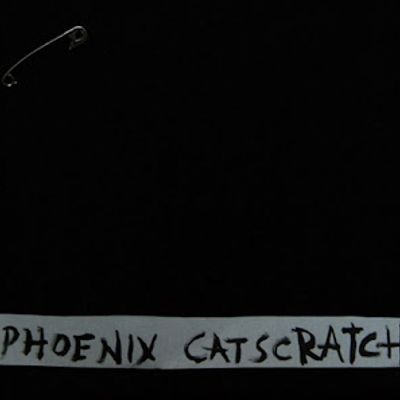 PHOENIX CATSCRATCH